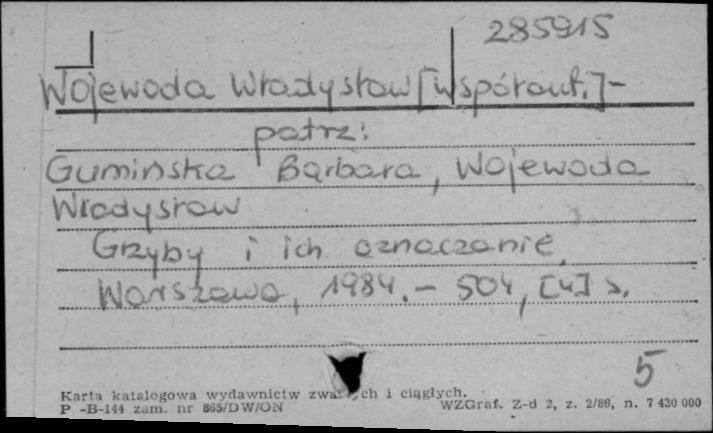 285915
Wojewoda Władysław [współaut.] -
patrz:
Gumińska Barbara, Wojewoda
Władysław
Grzyby i ich oznaczanie.
Warszawa, 1984. - 504, [4] s.
5
Karta katalogowa wydawnictw zwartych i ciągłych.
P -B-144 zam. nr 865/DW/ON WZGraf. Z-d 2, z. 2/86, n. 7 430 000